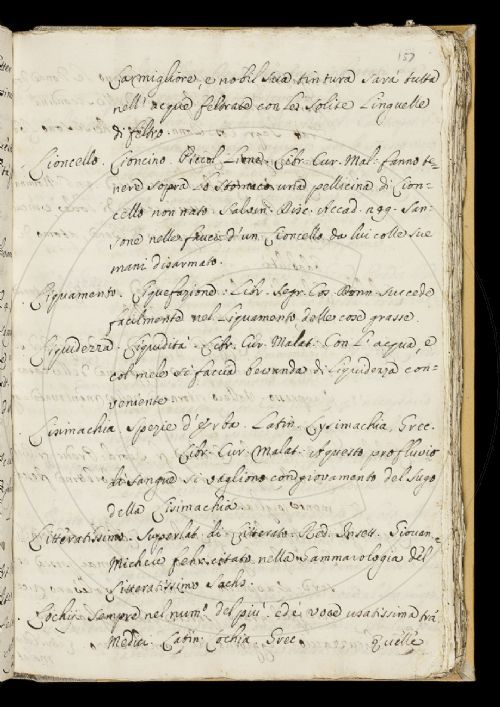 157
La migliore, e nobil sua tintura sarà tutta
nell'acque feltrate con le solite linguette
di feltro.
Lioncello. Lioncino. Piccol Lione. Libr. Cur. Mal: fanno te=
nere sopra lo stomaco una pellicina di Lion=
cello non nato. Salvin. Disc. Accad. San=
sone nelle fauci d'un Lioncello da lui colle sue
mani disarmato.
Liquamento. Liquefazione. Libr. Segr. Cos. Donn. succede
facilmente nel Liquamento delle cose grasse.
Liquidezza. Liquidità. Libr. Cur. Malat: Con l'acqua, e
col mele si faccia bevanda di liquidezza con=
veniente.
Lisimachia spezie d'erba. Latin. Lysimachia, Grec.
Libr. Cur. Malat: A questo profluvio
di sangue si vagliono con giovamento del sugo
della Lisimachia.
Litteratissimo. Superlat. di Litterato. Red. Insett. Giovan=
Michele citato nella Gammarologia del
Litteratissimo Sachs.
Lochij. sempre nel num.º del più. ed è voce usatissima trà
Medici. Latin. Lochia. Grec. Quelle